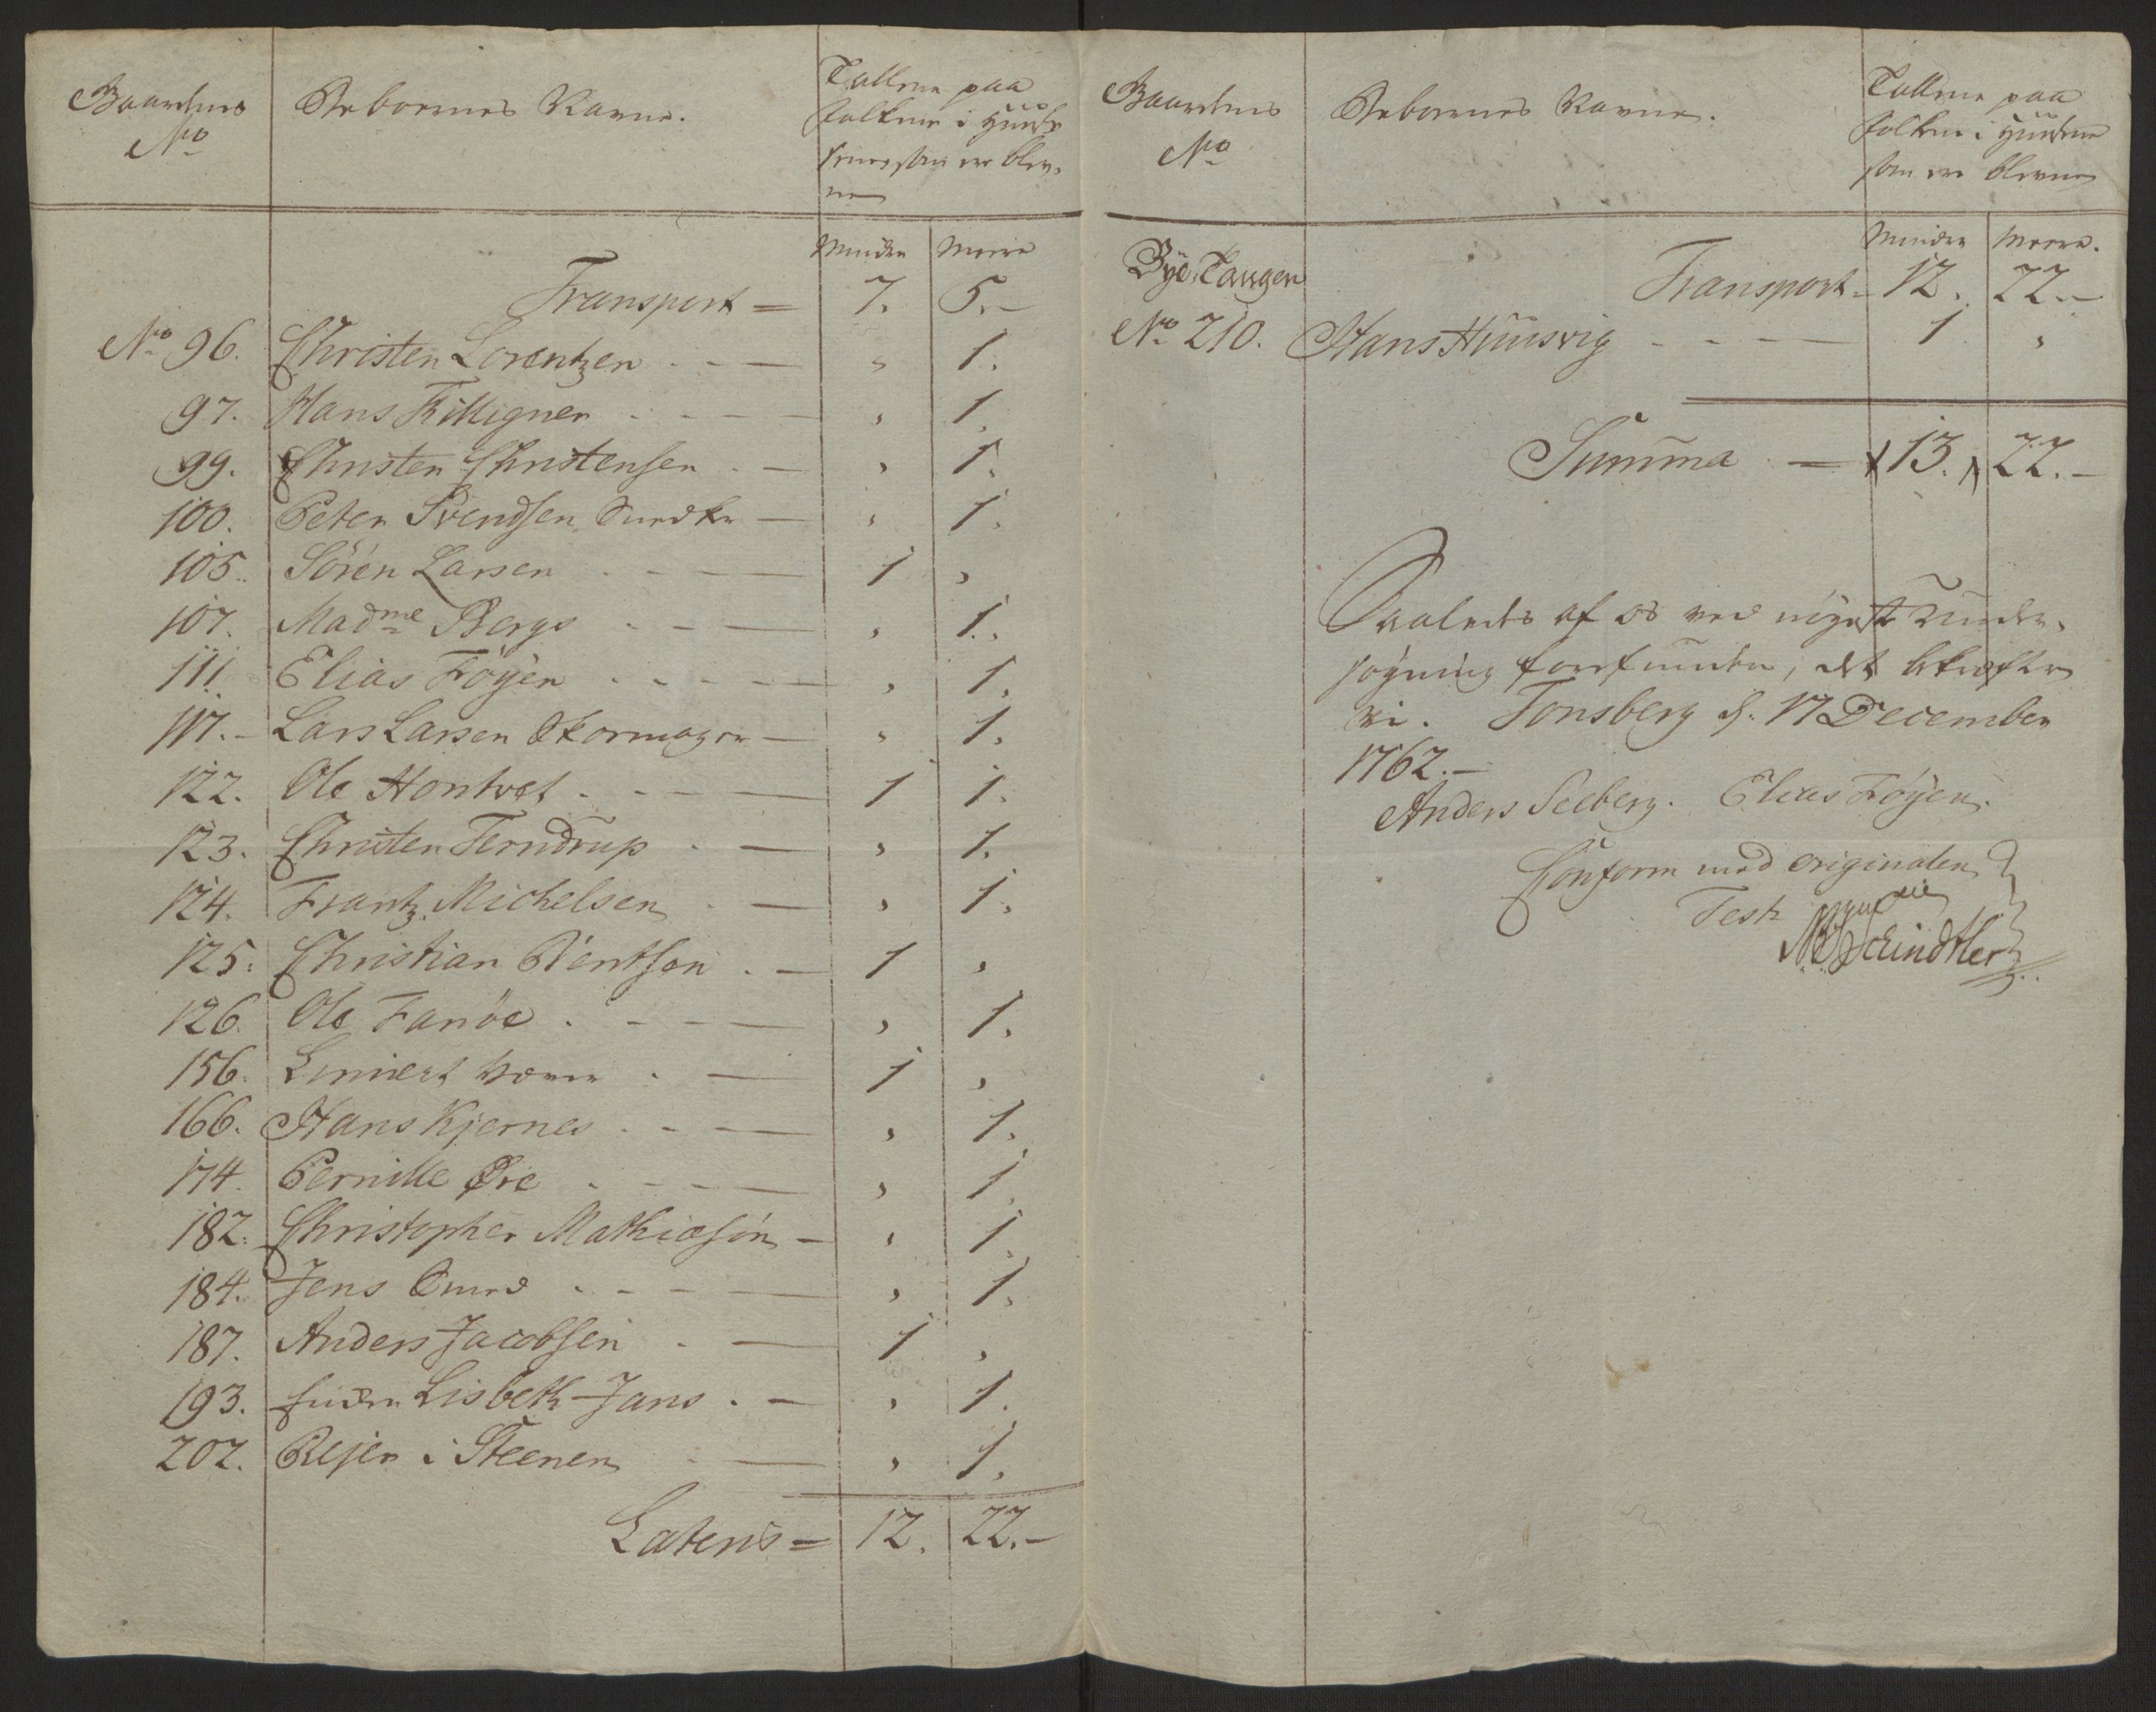 Gaardenes
No
Beboernes Navne.
Tallene paa
folkene i Huuse
som ere blev-
ne
Mindre Meere
Transport = 7. 5.-
No 96. Christen Lorentzen . - — „ 1.
97. Hans Killigner . - - — „ 1.
99. Christen Christensen . — „ 1.
100. Peter Svendsen Snedker — „ 1.
105. Sören Larsen . - — 1 „
107. Madme Bergs . - — „ 1.
111. Elias Föyen . - - — „ 1.
117. - Lars Larsen Skomager — „ 1.
122. Ole Hontvet . - - — 1 1.
123. Christen Terndrup . — „ 1.
124. Frantz Michelsen . — „ 1.
125. Christian Bentsen . — 1 „
126. Ole Fanöe . - - — „ 1.
156. Lennert . — 1 „
166. Hans Kjernes . - — „ 1.
174. Pernille Øre . - — „ 1.
182. Christopher Mathiesön — „ 1.
184. Jens Smed . - - — „ 1.
187. Anders Jacobsen . — 1 „
193. Enken Lisbeth Jans . — „ 1.
202. Rejer i Steenen . — „ 1.
Lateris = 12. 22.-
Gaardenes
No
Beboernes Navne.
Tallene paa
folkene i Huusene
som ere blevne
Mindre Meere.
Bye Tangen
Transport = 12. 22.-
No 210. Hans Huusvig . - - — 1 „
Summa — 13. 22.-
Saaledes af os ved nöyeste Under-
søgning forefunden, det bekræfter
vi. Tonsberg d. 17 December
1762.-
Anders Seeberg. Elias Föyen.
Conform med originalen
Test
Schindtler